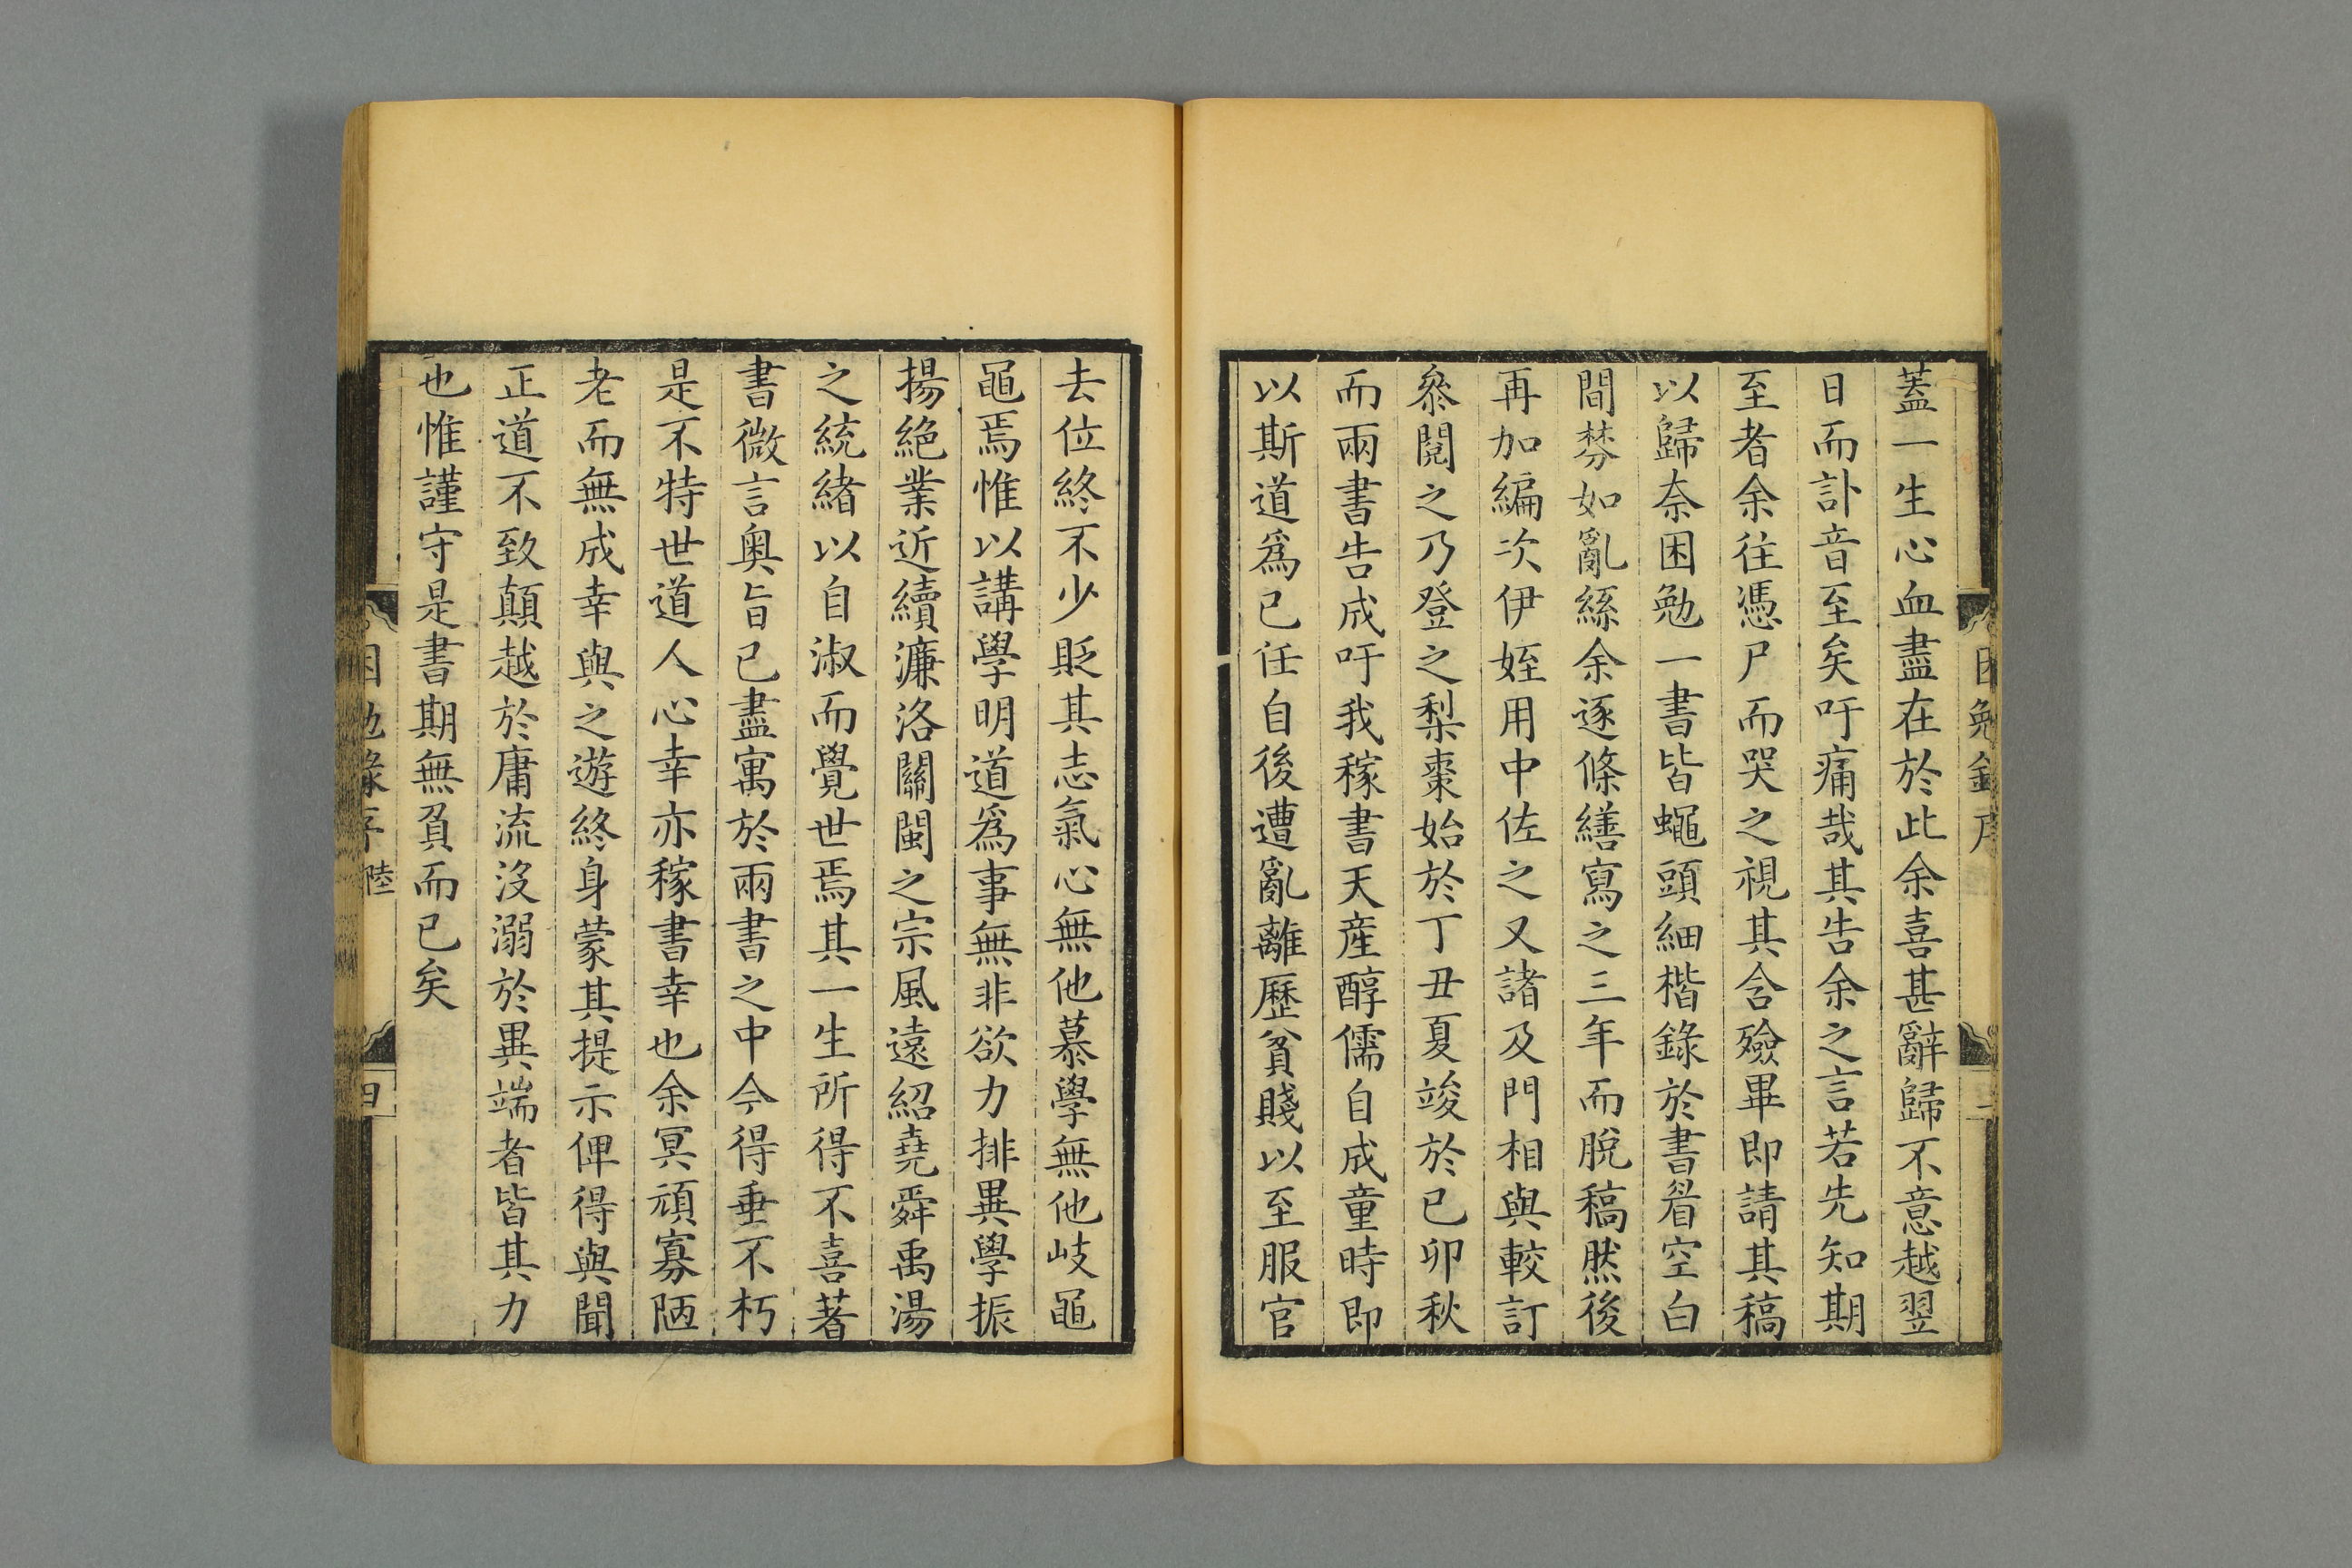 蓋一生心血盡在於此余喜甚辭歸不意越翌
日而訃音至矣吁痛哉其告余之言若先知期
至者余往憑尸而哭之視其含殮畢即請其稿
以歸奈困勉一書皆蠅頭細楷錄於書眉空白
間棼如亂絲余逐條繕寫之三年而脫稿然後
再加編次伊姪用中佐之又諸及門相與較訂
叅閱之乃登之梨棗始於丁丑夏竣於已卯秋
而兩書告成吁我稼書天産醇儒自成童時即
以斯道爲已任自後遭亂離歷貧賤以至服官
去位終不少貶其志氣心無他慕學無他岐黽
黽焉惟以講學明道爲事無非欲力排異學振
揚絕業近續濂洛關閩之宗風遠紹堯舜禹湯
之統緒以自淑而覺世焉其一生所得不喜著
書微言奧旨已盡寓於兩書之中今得垂不朽
是不特世道人心幸亦稼書幸也余冥頑寡陋
老而無成幸與之遊終身蒙其提示俾得與聞
正道不致顛越於庸流沒溺於異端者皆其力
也惟謹守是書期無負而已矣